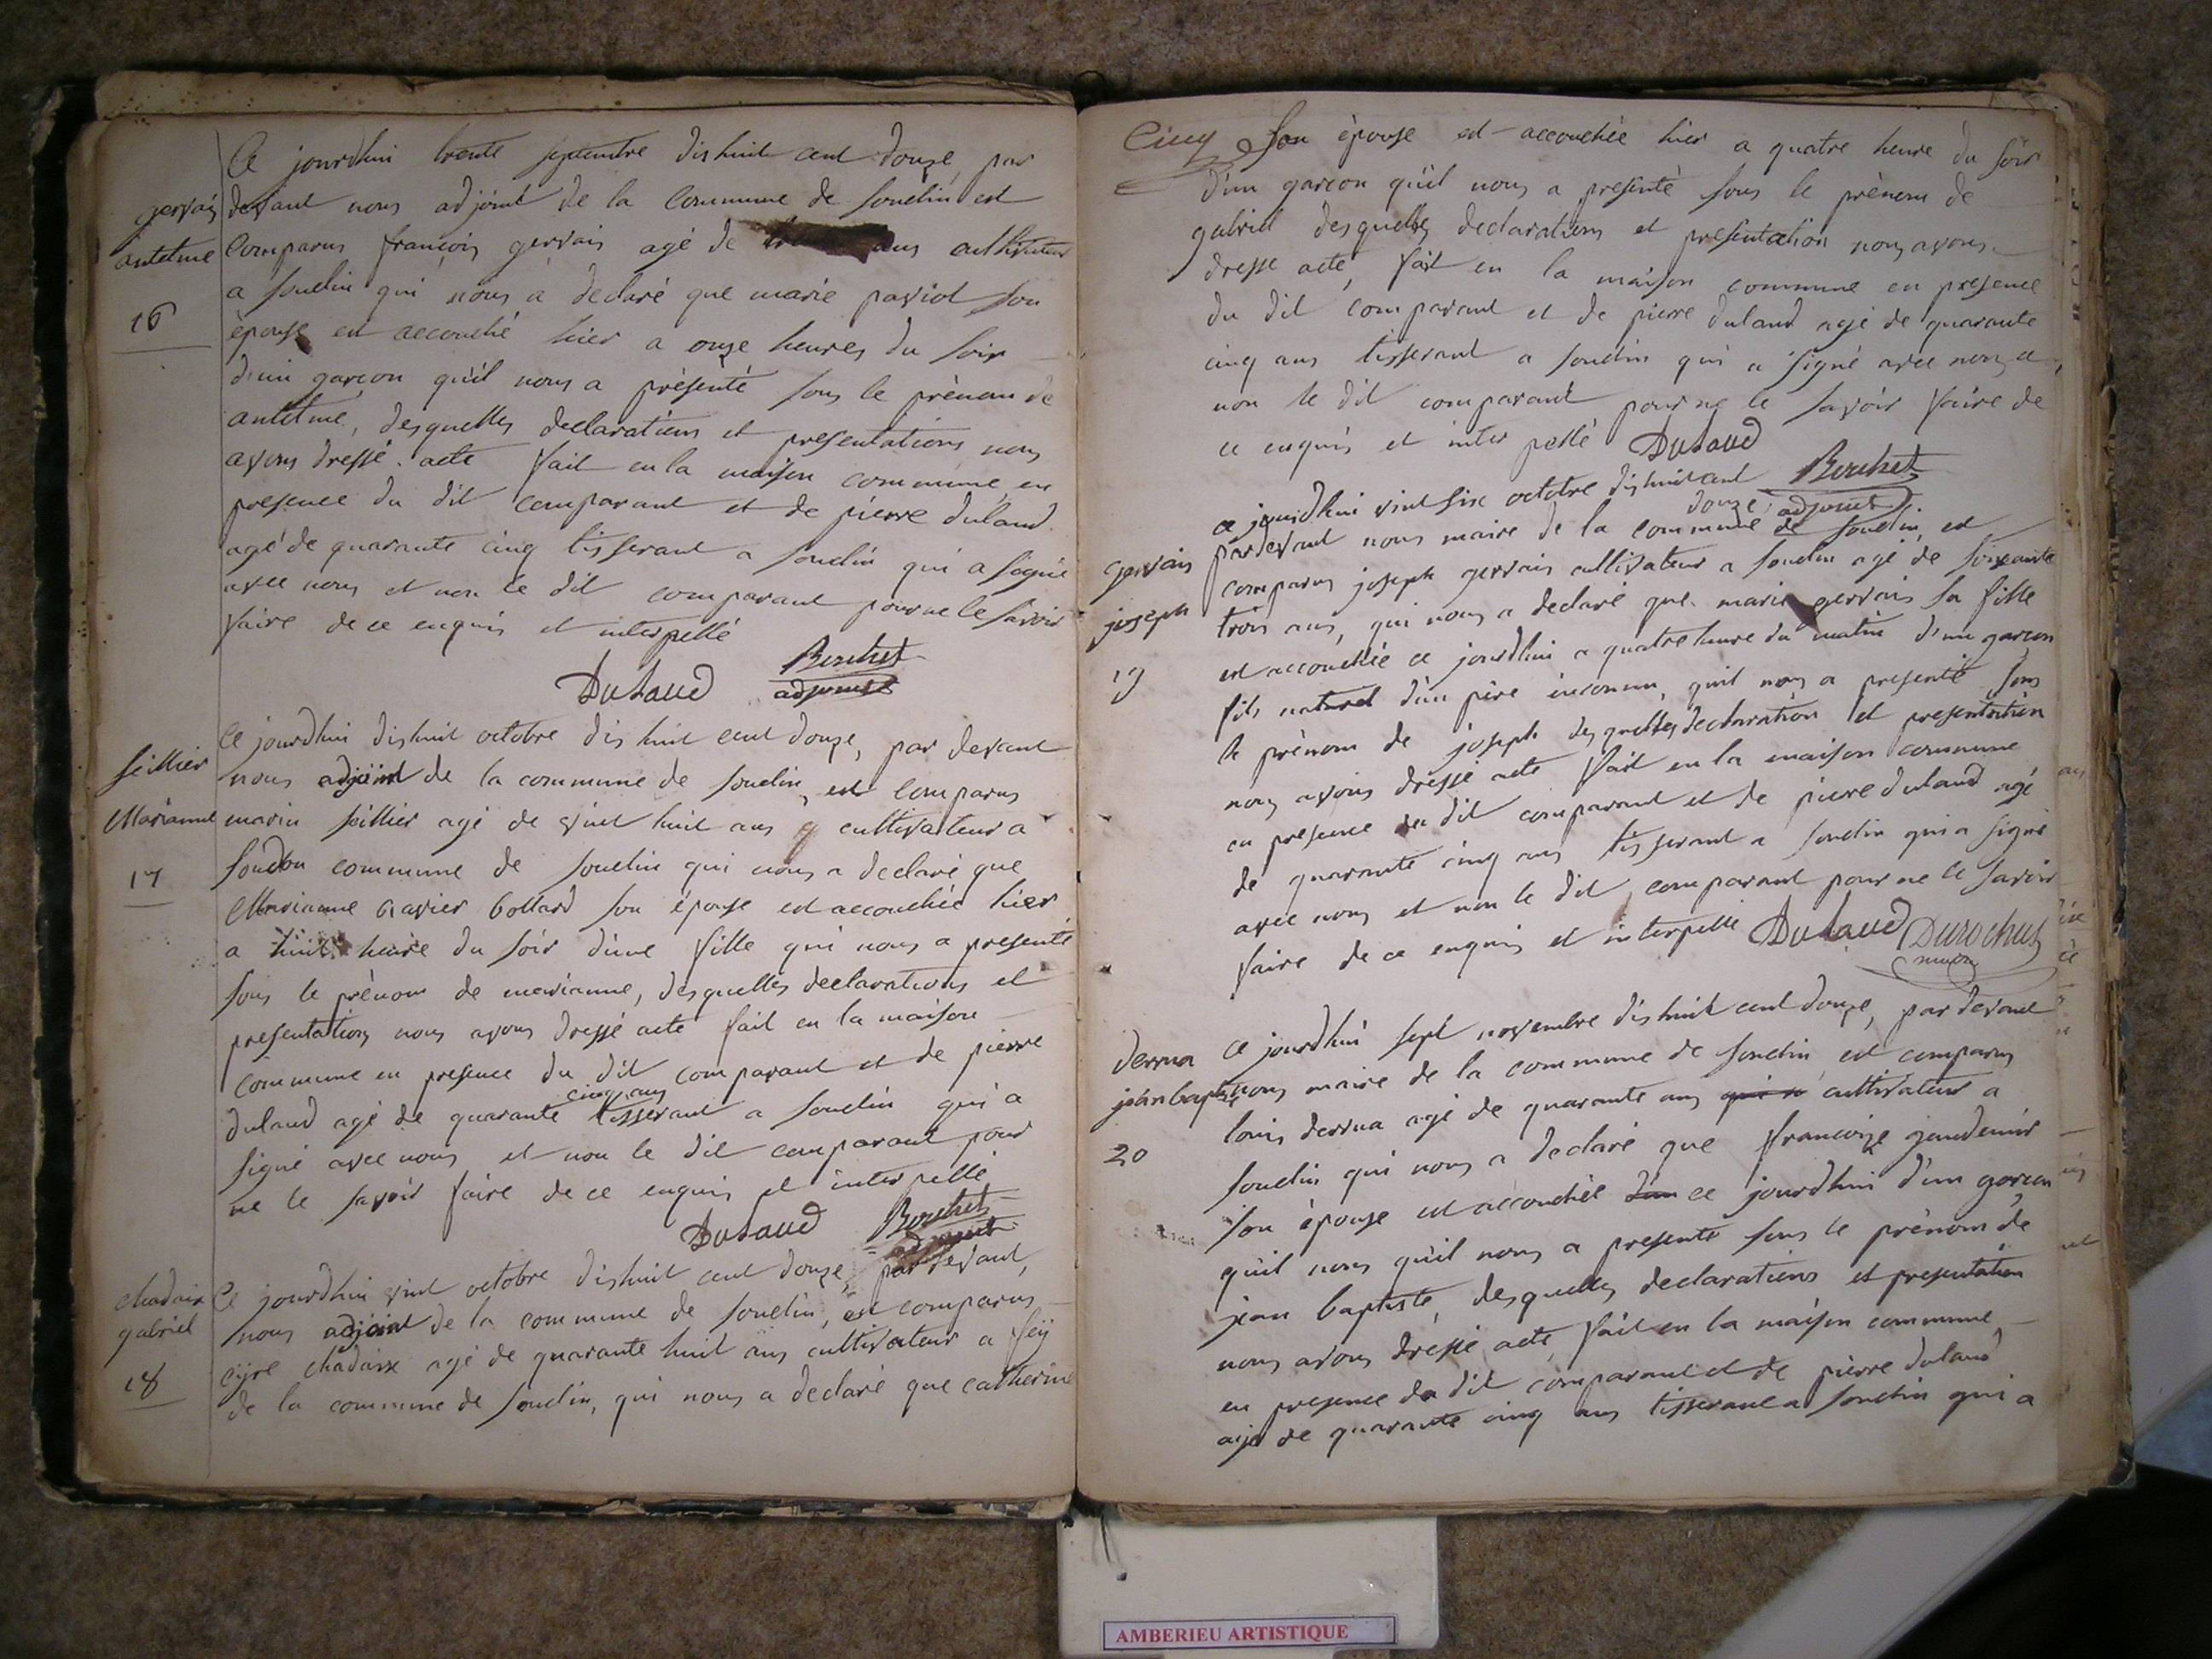 gervais
antelme
16
Ce jourdhui trente septembre dishuit cent douze, par
devant nous adjoint de la commune de souclin est
comparus françois gervais agé de ans cultivateur
a souclin qui nous a declaré que marie paviot son
épouse est accouché hier a onze heures du soir
d'un garçon qu'il nous a présenté sous le prénom de
antelme, desquelles declarations et presentations nous
avons dressé acte fait en la maison commune en
presence du dit comparant et de pierre duland
agé de quarante cinq tisserant a souclin qui a signé
avec nous et non le dit comparant pour ne le savoir
faire de ce enquis et interpellé
Dulaud Berchet
adjoint
seillier
Marianne
17
Ce jourdhui dishuit octobre dis huit cent douze, par devant
nous adjoint de la commune de souclin, est comparus
marin seillier agé de vint huit ans cultivateur a
soudon commune de souclin qui nous a declaré que
Marianne Gavier Bottard son épouse est accouchée hier
a huit heure du soir d'une fille qui nous a presenté
sous le prénom de marianne, desquelles declarations et
presentations nous avons dressé acte fait en la maison
commune en presence du dit comparant et de pierre
duland agé de quarante cinq ans tisserant a souclin qui a
signé avec nous et non le dit comparant pour
ne le savoir faire de ce enquis et interpellé
Dulaud Berchet
adjoint
chadaix
gabriel
18
Ce jourdhui vint octobre dishuit cent douze, par devant,
nous adjoint de la commune de souclin, est comparus
cyre chadaix agé de quarante huit ans cultivateur a fÿ
de la commune de souclin, qui nous a declaré que catherine
Cinq son épouse est accouchée hier a quatre heure du soir
d'un garcon qu'il nous a presenté sous le prénom de
gabriel desquelles declarations et presentation nous avons
dresse acte, fait en la maison commune en presence
du dit comparant et de pierre duland agé de quarante
cinq ans tisserant a souclin qui a signé avec nous et
non le dit comparant pour ne le savoir faire de
ce enquis et inter pellé Dulaud
Berchet
adjoint
gervais
joseph
19
ce jourdhui vint six octobre dishuit cent douze
pardevant nous maire de la commune de souclin, est
comparus joseph gervais cultivateur a souclin agé de soixante
trois ans, qui nous a declaré que marie gervais sa fille
est accouchée ce jourdhui a quatre heure du matin d'un garcon
fils naturel d'un père inconnu, quil nous a presenté sous
le prénom de joseph desquelles declaration et presentation
nous avons dressé acte fait en la maison commune
en presence du dit comparant et de pierre duland agé
de quarante cinq ans tisserant a souclin qui a signé
avec nous et non le dit comparant pour ne le savoir
faire de ce enquis et interpellé Dulaud Durochat
maire
derrua
jean baptiste
20
Ce jourdhui sept novembre dishuit cent douze, par devant
nous maire de la commune de souclin est comparus
louis derrua agé de quarante ans qui n cultivateur a
souclin qui nous a declaré que francoise
son épouse est accouchée d'un ce jourdhui d'un garcon
qu'il nous qu'il nous a presenté sous le prénom de
jean baptiste, desquelles declarations et presentation
nous avons dressé acte, fait en la maison commune
en presence du dit comparant et de pierre duland
agé de quarante cinq ans tisserant a souclin qui a
AMBERIEU ARTISTIQUE